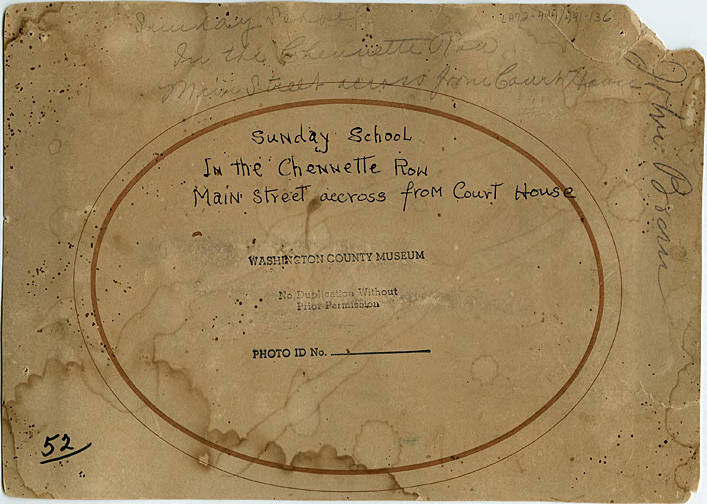 Sunday School
In the Chennette Row
Main Street across from Court House
John
Sunday School
In the Chennette Row
Main Street accross from Court House
WASHINGTON COUNTY MUSEUM
No Duplication Without
Prior Permission
PHOTO ID No.
52